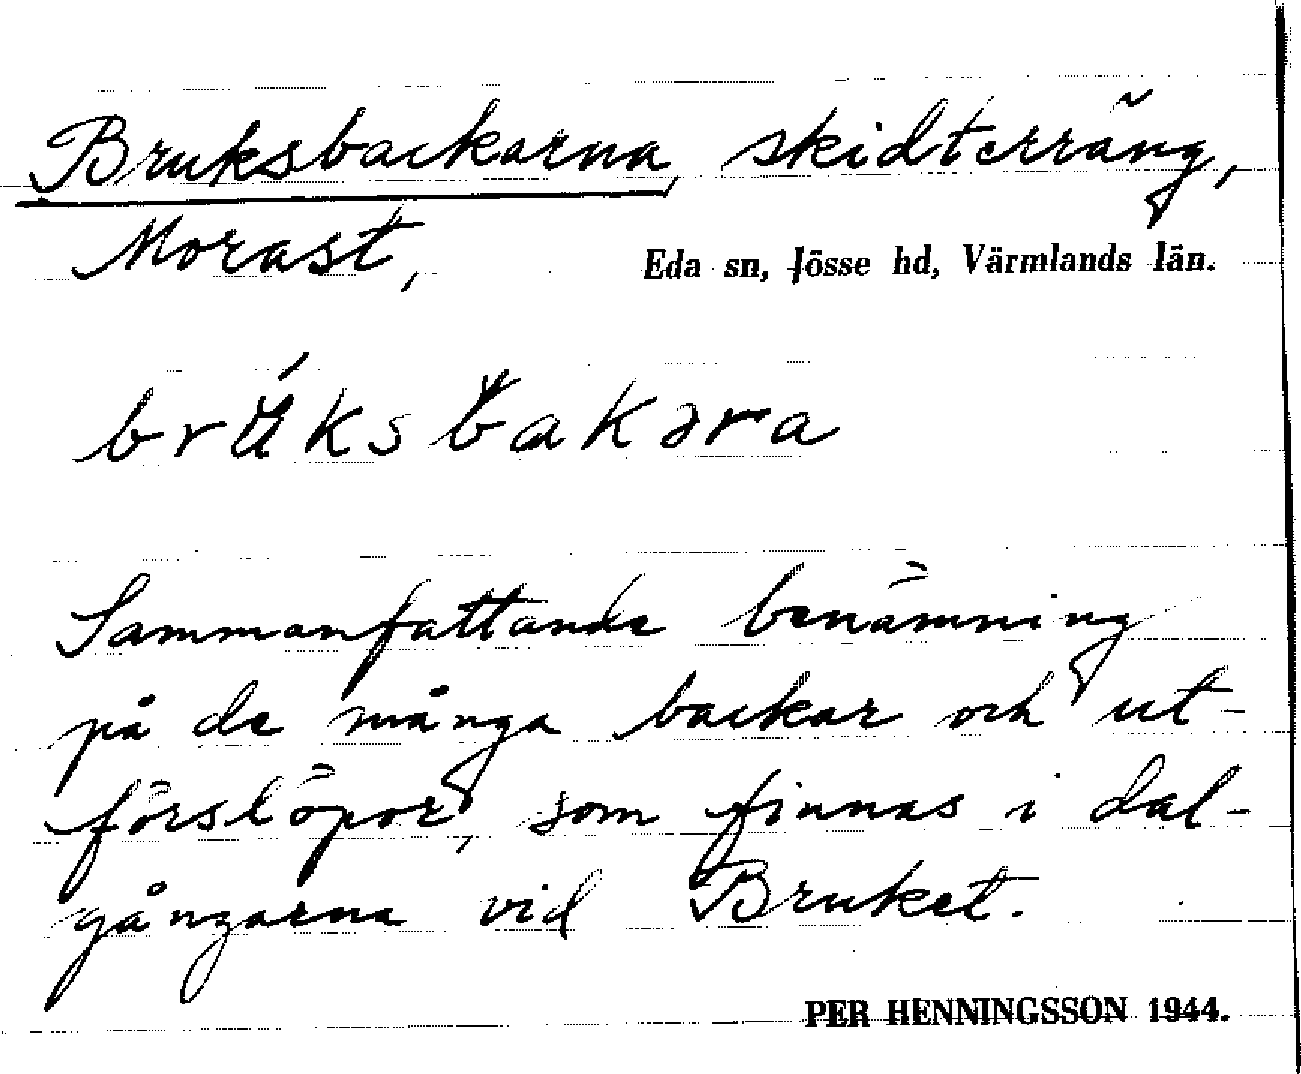 Bruksbackarna, skidterräng,
Morast,
Eda sn, Jösse hd, Värmlands län.
brúksbakəra
Sammanfattande benämning
på de många backar och ut-
förslöpor, som finnas i dal-
gångarna vid Bruket.
PER HENNINGSSON 1944.